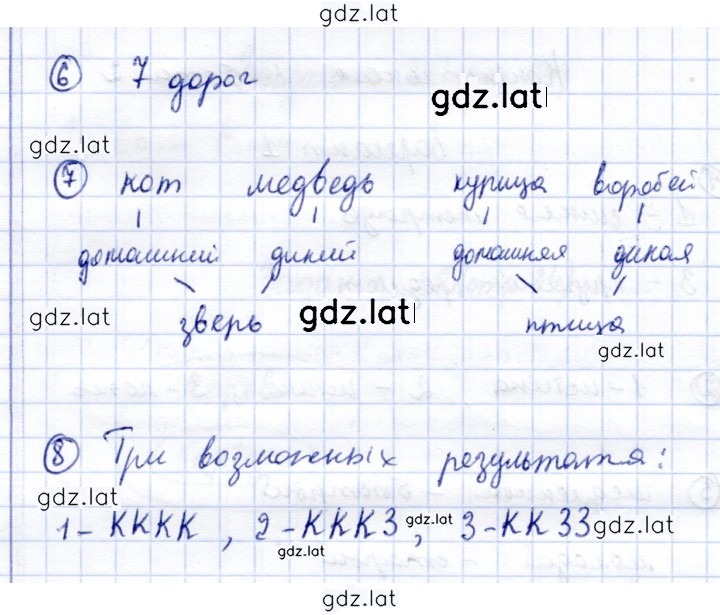 gdz.lat
6 7 дорог
gdz.lat
gdz.lat
7 кот медведь курица воробей
домашний дикий домашняя дикая
gdz.lat
зверь gdz.lat птица
gdz.lat
8 Три возможных результата:
gdz.lat
1 - КККК, 2 - КККЗ, 3 - ККЗЗ
gdz.lat gdz.lat
gdz.lat
gdz.lat